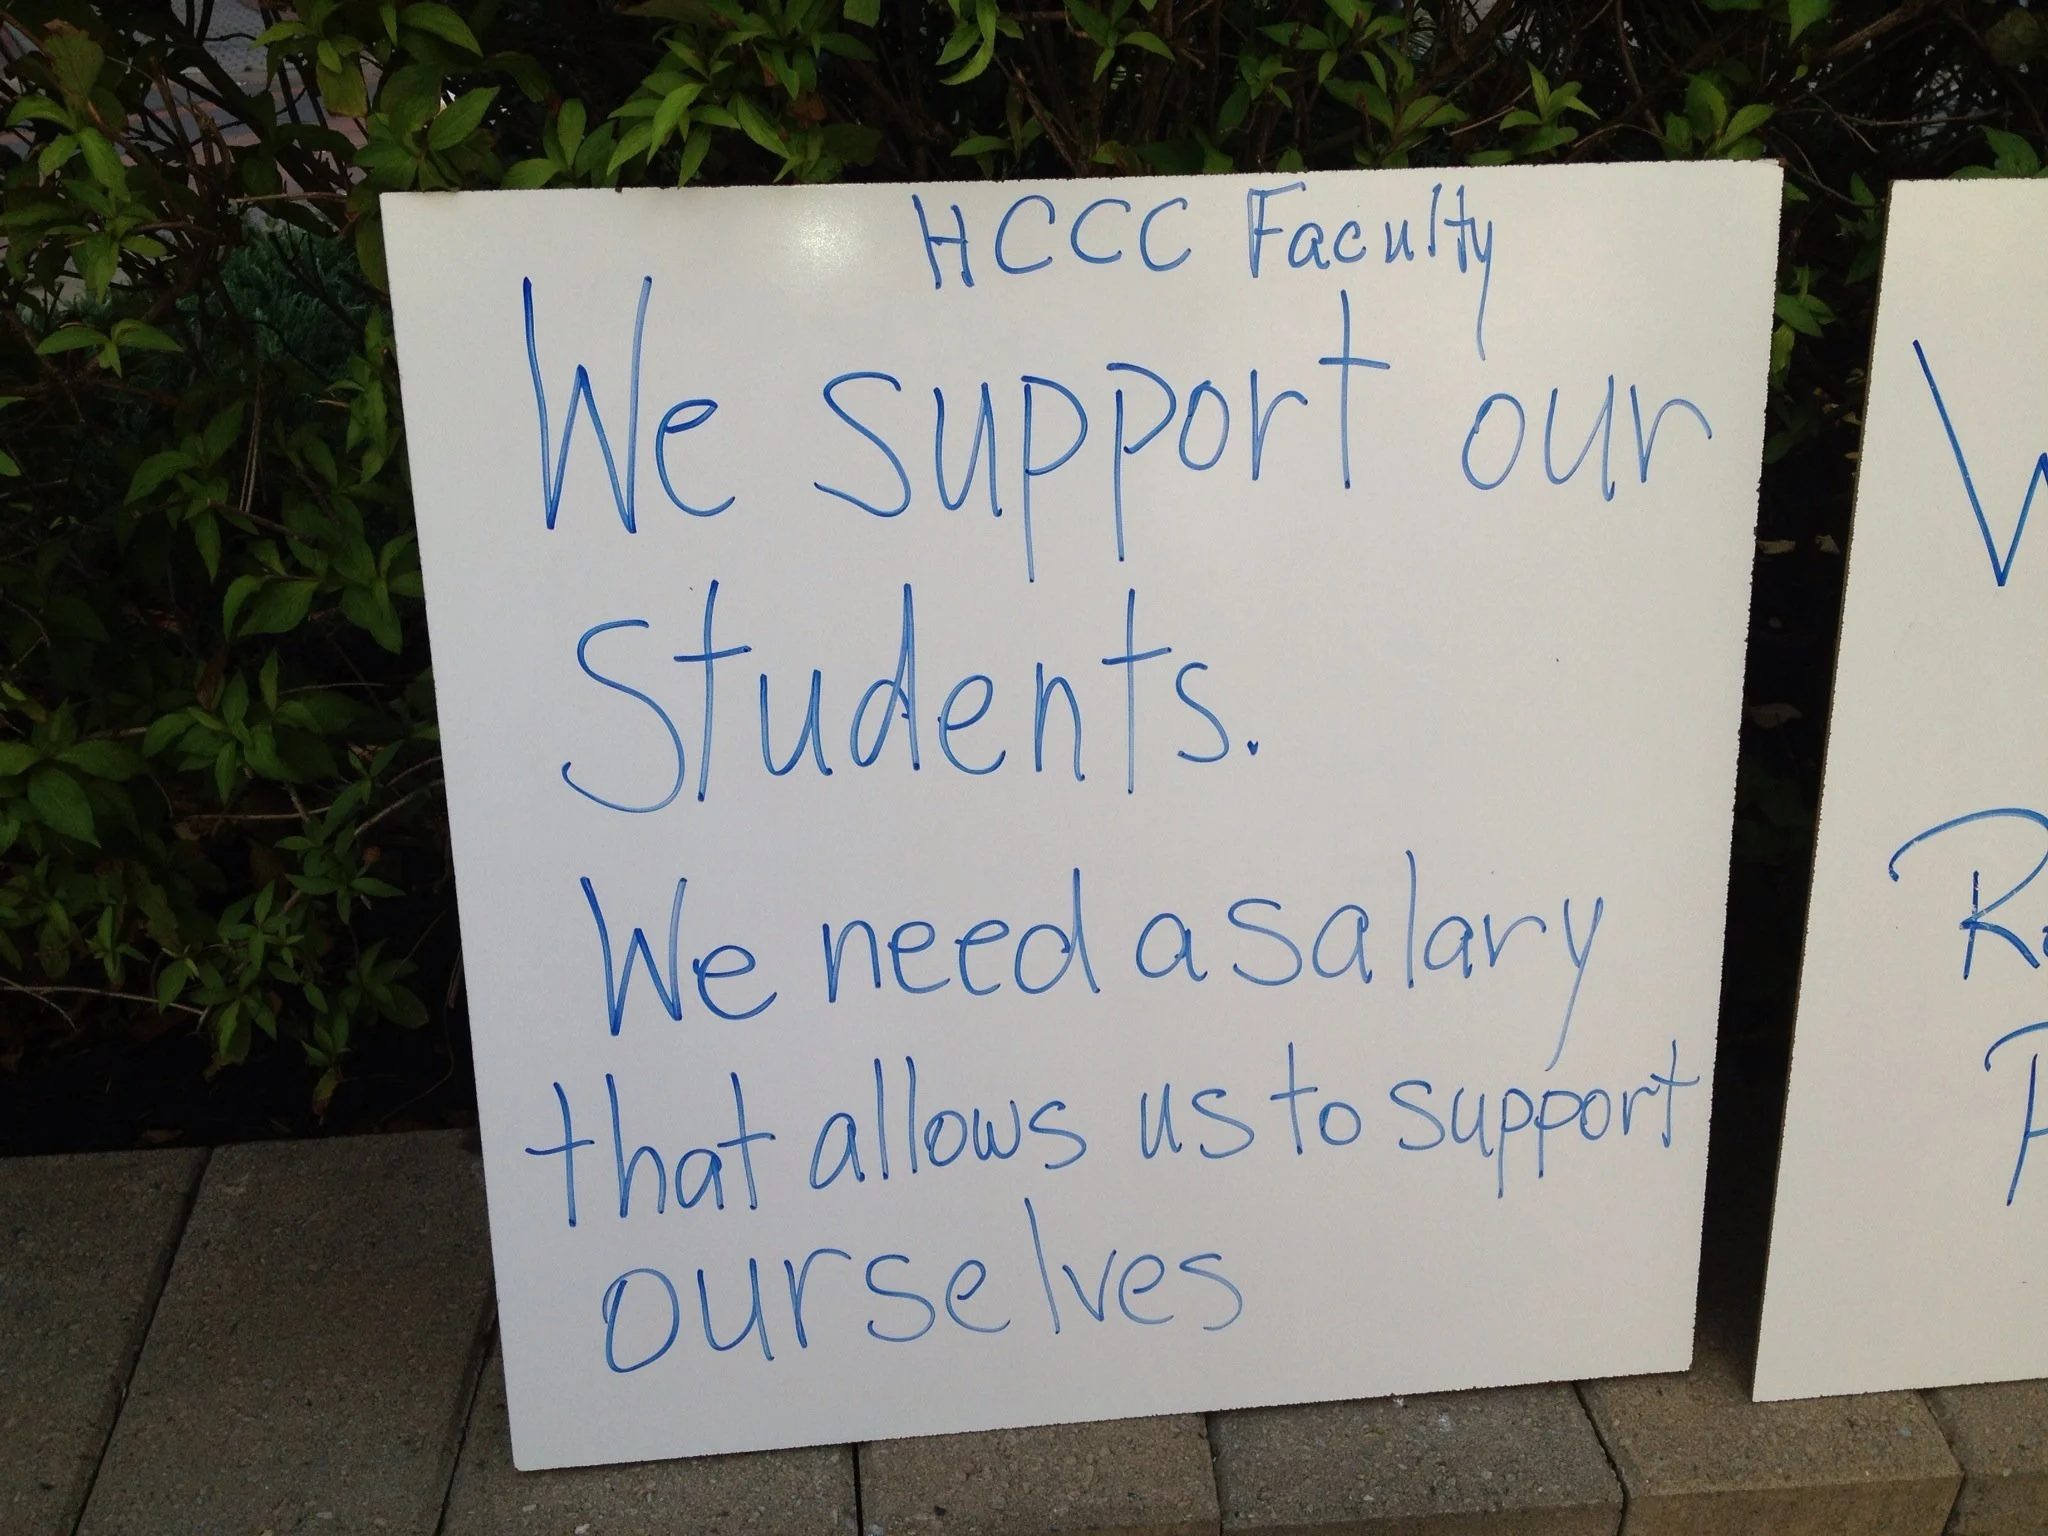 HCCC Faculty
We support our
Students.
We need a salary
that allows us to support
ourselves